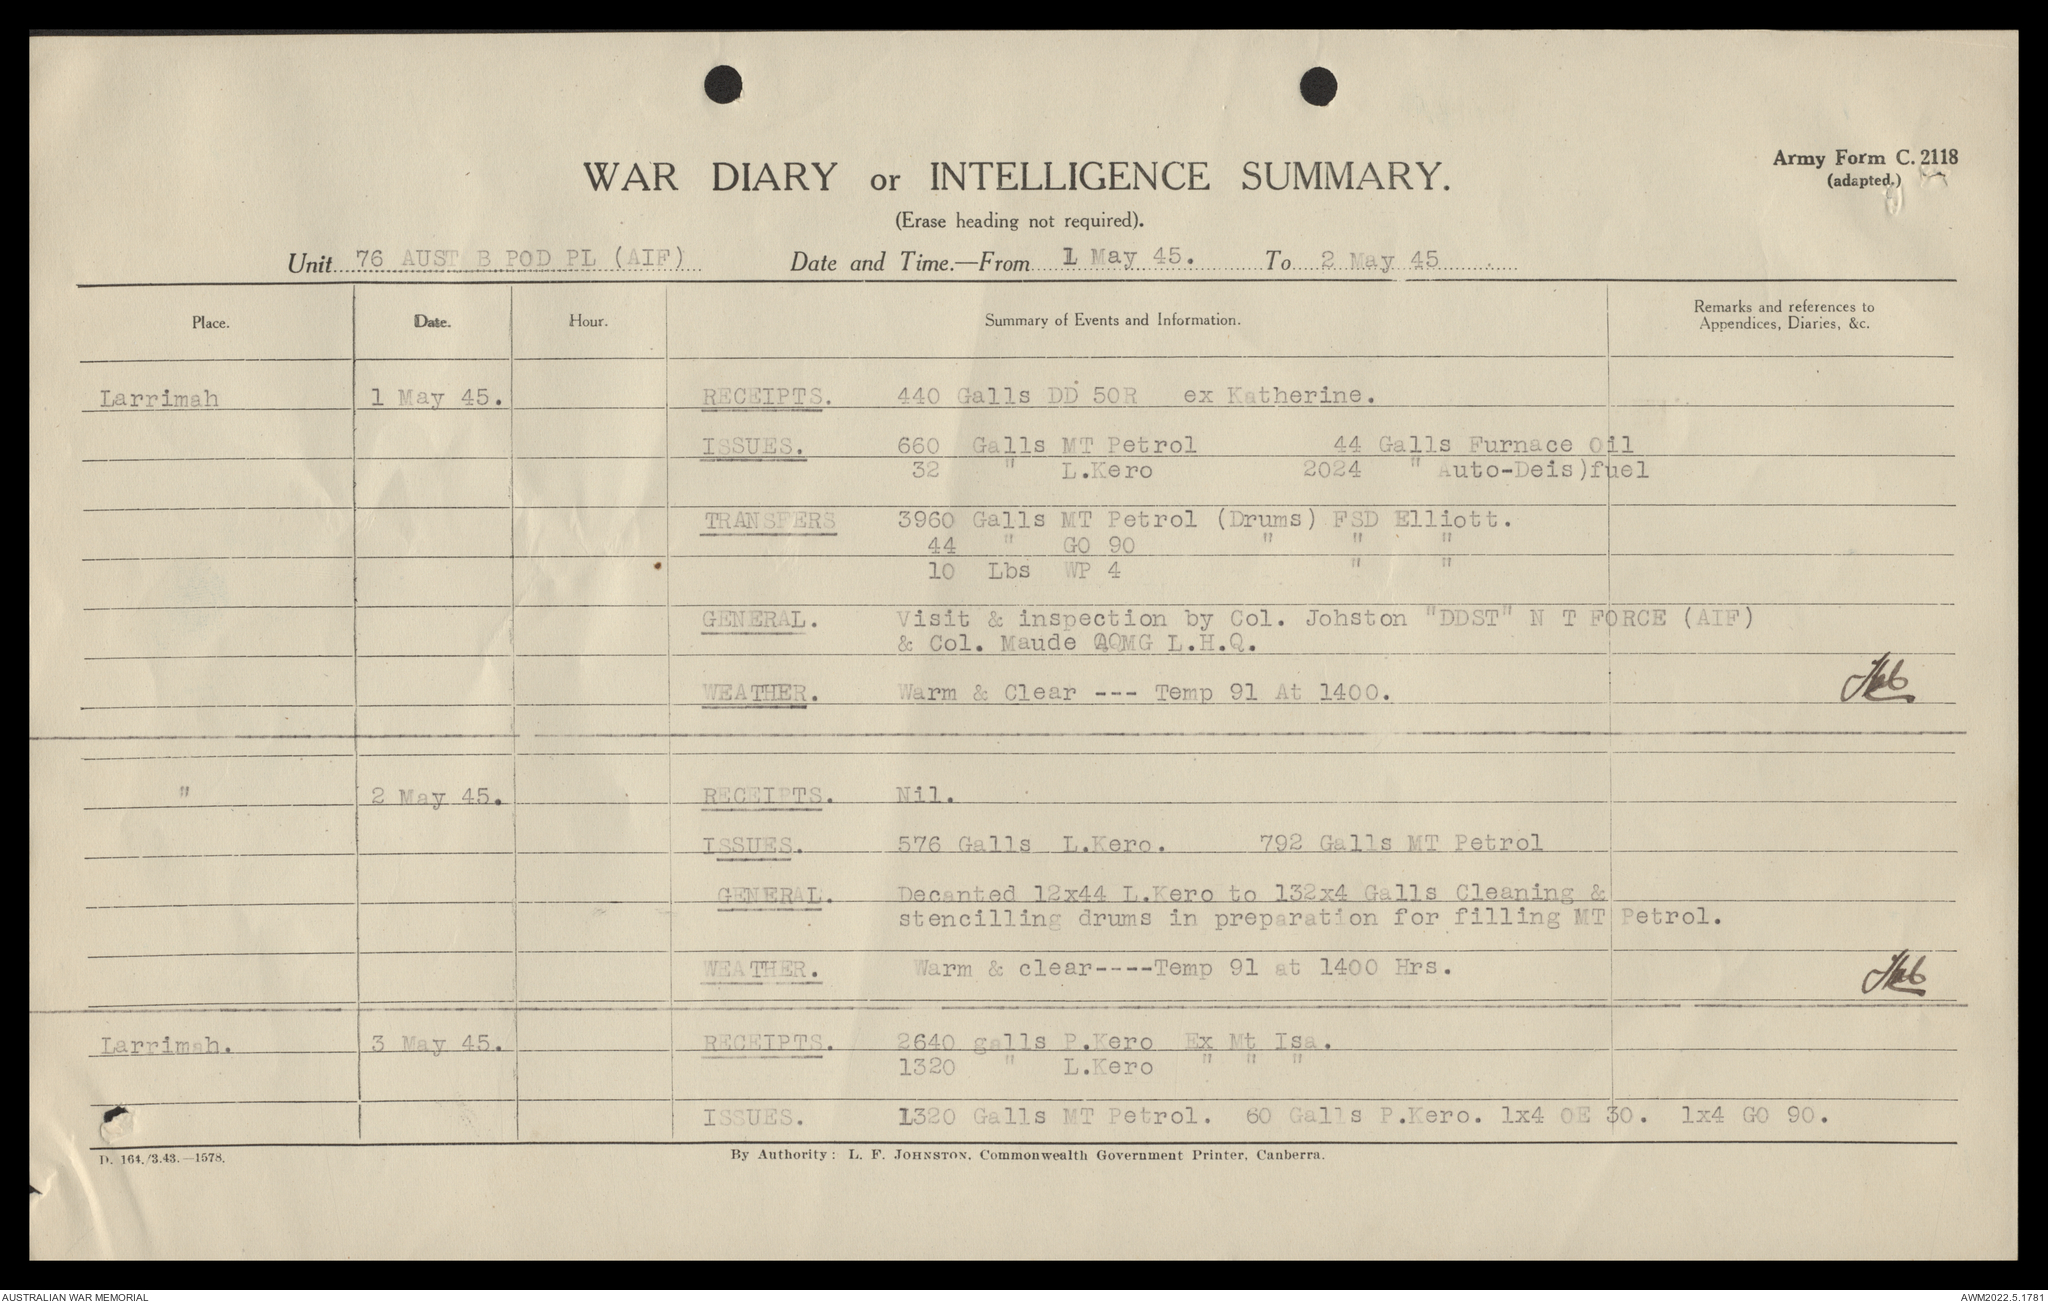 Army Form C. 2118
(adapted.)
WAR DIARY or INTELLIGENCE SUMMARY.
(Erase heading not required).
Unit 76 AUST B POD PL (AIF) Date and Time.—From 1 May 45. To 2 May 45
Place. Date. Hour. Summary of Events and Information. Remarks and references to Appendices, Diaries, &c.
Larrimah 1 May 45. RECEIPTS. 440 Galls DD 50R ex Katherine.
ISSUES. 660 Galls MT Petrol 44 Galls Furnace Oil
32 " L.Kero 2024 " Auto-Deis)fuel
TRANSFERS 3960 Galls MT Petrol (Drums) FSD Elliott.
44 " GO 90 " " "
10 Lbs WP 4 " "
GENERAL. Visit & inspection by Col. Johston "DDST" N T FORCE (AIF)
& Col. Maude AQMG L.H.Q.
WEATHER. Warm & Clear --- Temp 91 At 1400.
" 2 May 45. RECEIPTS. Nil.
ISSUES. 576 Galls L.Kero. 792 Galls MT Petrol
GENERAL. Decanted 12x44 L.Kero to 132x4 Galls Cleaning &
stencilling drums in preparation for filling MT Petrol.
WEATHER. Warm & clear----Temp 91 at 1400 Hrs.
Larrimah. 3 May 45. RECEIPTS. 2640 galls P.Kero Ex Mt Isa.
1320 " L.Kero " " "
ISSUES. 1320 Galls MT Petrol. 60 Galls P.Kero. 1x4 OE 30. 1x4 GO 90.
D. 164./3.43.—1578.
By Authority: L. F. JOHNSTON, Commonwealth Government Printer, Canberra.
AUSTRALIAN WAR MEMORIAL
AWM2022.5.1781